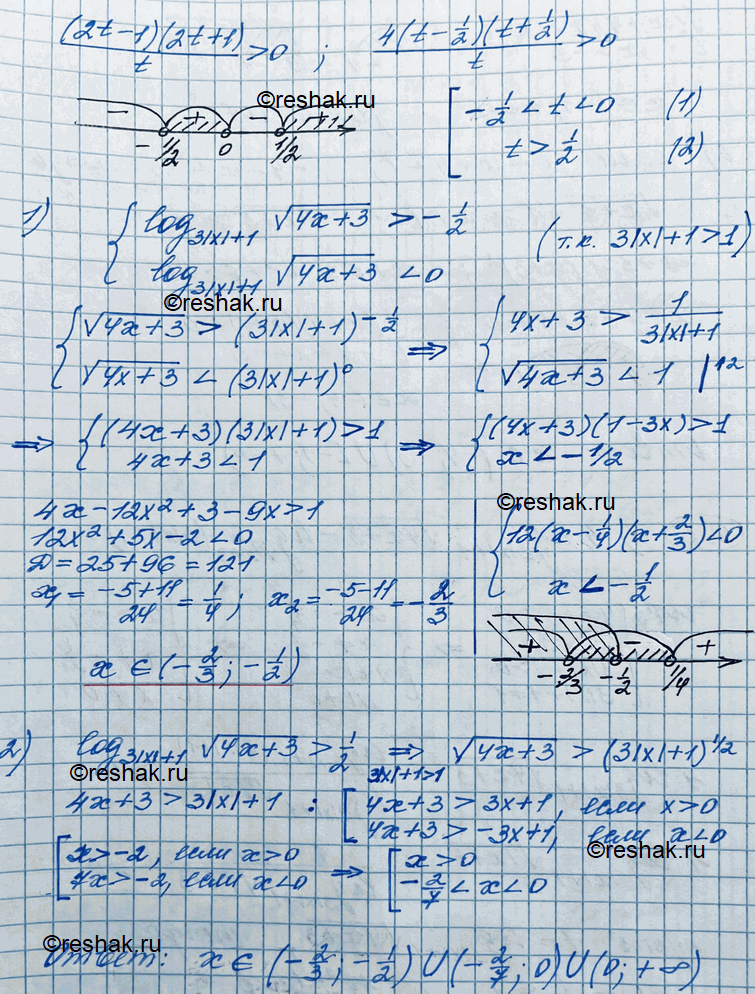 (2t-1)(2t+1)/t > 0 ; 4(t-1/2)(t+1/2)/t > 0
©reshak.ru
- + - +
-1/2 0 1/2
[ -1/2 < t < 0 (1)
t > 1/2 (2)
1) { log_{3|x|+1} √(4x+3) > -1/2
log_{3|x|+1} √(4x+3) < 0
(т.к. 3|x|+1>1)
©reshak.ru
{ √(4x+3) > (3|x|+1)^{-1/2}
√(4x+3) < (3|x|+1)^0
⇒ { 4x+3 > 1/(3|x|+1)
√(4x+3) < 1 |↑2
⇒ { (4x+3)(3|x|+1)>1
4x+3<1
⇒ { (4x+3)(1-3x)>1
x < -1/2
4x-12x²+3-9x>1
12x²+5x-2<0
D=25+96=121
x₁ = (-5+11)/24 = 1/4; x₂ = (-5-11)/24 = -2/3
x ∈ (-2/3; -1/2)
©reshak.ru
{ 12(x-1/4)(x+2/3)<0
x < -1/2
+ - +
-2/3 -1/2 1/4
2) log_{3|x|+1} √(4x+3) > 1/2 ⇒ √(4x+3) > (3|x|+1)^{1/2}
3|x|+1>1
©reshak.ru
4x+3 > 3|x|+1 : [ 4x+3 > 3x+1, если x>0
4x+3 > -3x+1, если x<0
©reshak.ru
[ x>-2, если x>0
7x>-2, если x<0
⇒ [ x>0
-2/7 < x < 0
©reshak.ru
Ответ: x ∈ (-2/3; -1/2) ∪ (-2/7; 0) ∪ (0; +∞)